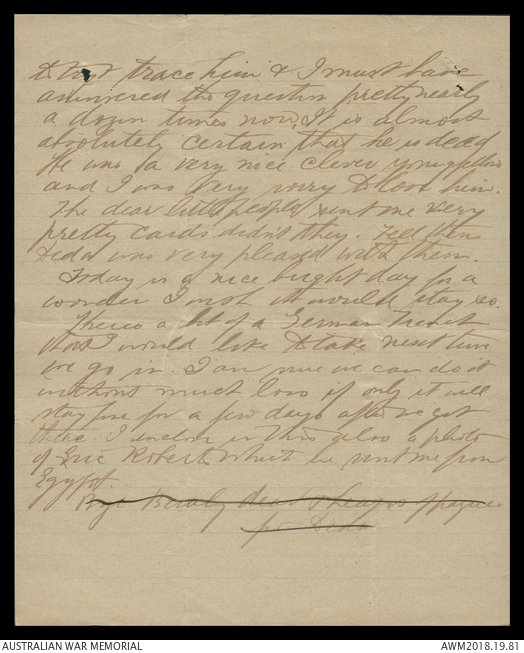 to trace him & I must have
answered the question pretty nearly
a dozen times now, It is almost
absolutely certain that he is dead
He was a very nice clever young fellow
and I was very sorry to loose him.
The dear little people sent me very
pretty cards didn't they. Tell them
Dida was very pleased with them.
Today is a nice bright day for a
wonder I wish it would stay so.
Theres a bit of a German Trench
that I would like to take next time
we go in. I am sure we can do it
without much loss if only it will
stay fine for a few days after we get
there. I enclose in this also a photo
of Eric Roberts which he sent me from
Egypt
Bye Beauty dear heaps of
from Dida
AUSTRALIAN WAR MEMORIAL
AWM2018.19.81